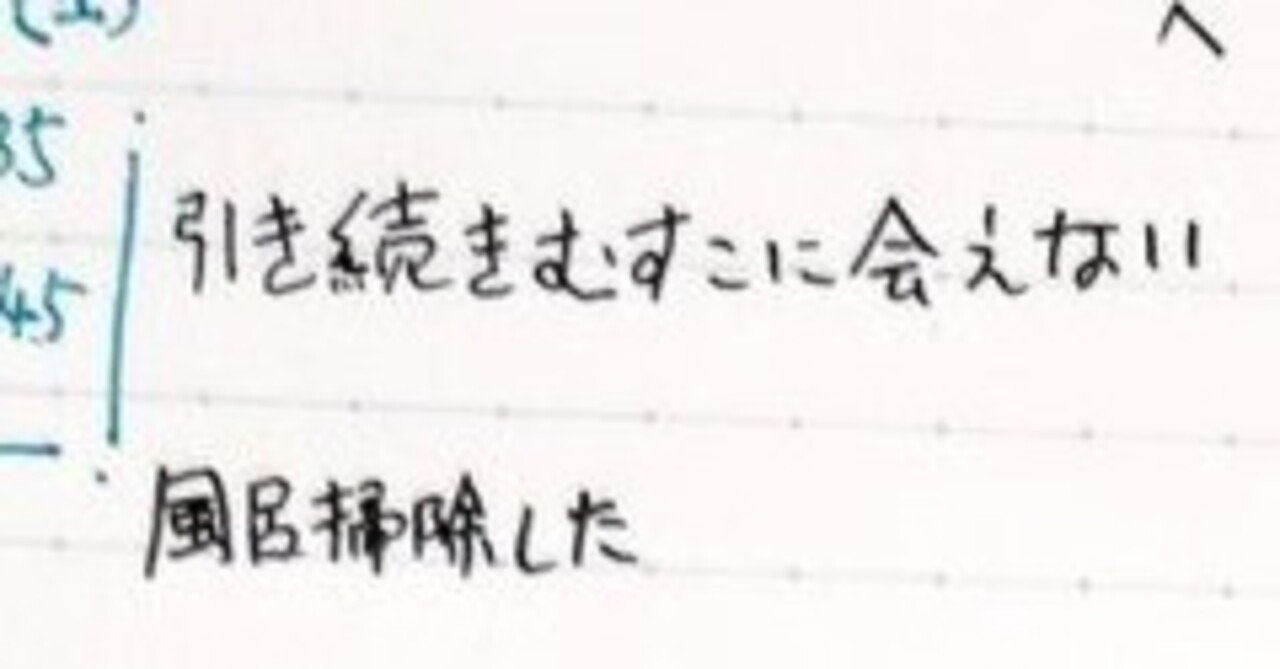 35
引き続きむすこに会えない
45
風呂掃除した